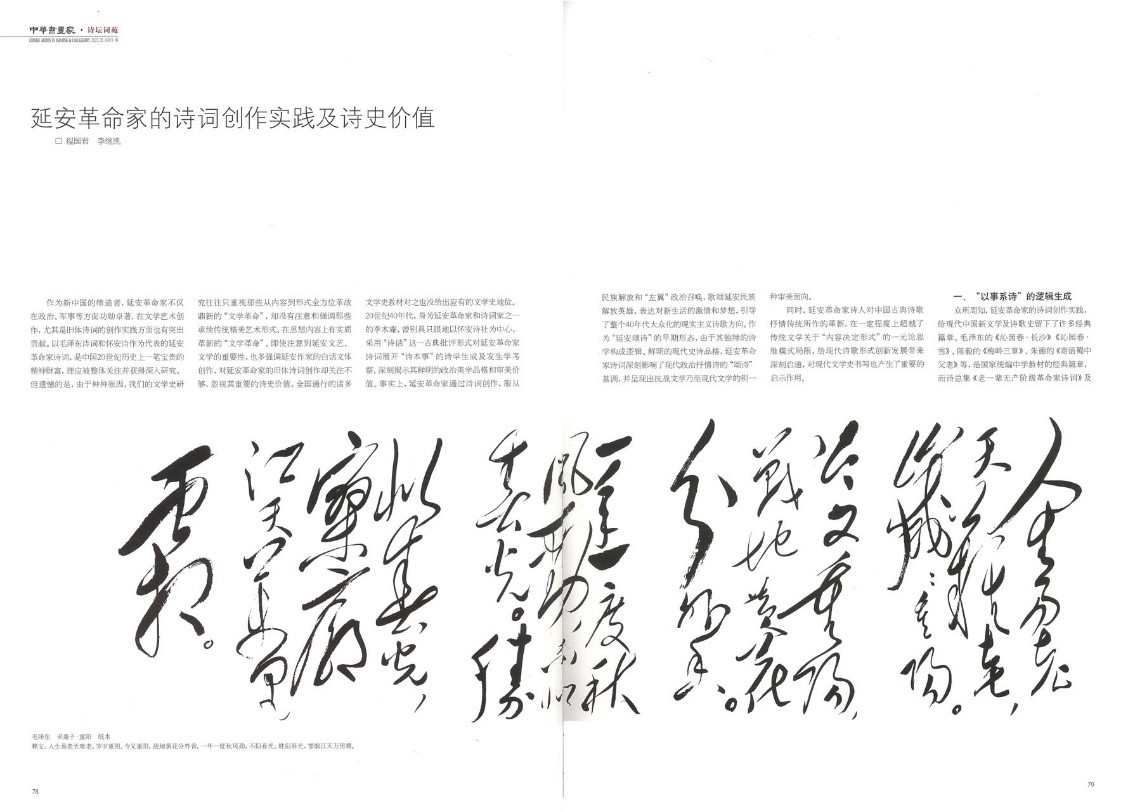 中华书画家·诗坛词苑
延安革命家的诗词创作实践及诗史价值
□ 程国君 李继凯
作为新中国的缔造者,延安革命家不仅
在政治、军事等方面功勋卓著,在文学艺术创
作,尤其是旧体诗词的创作实践方面也有突出
贡献。以毛泽东诗词和怀安诗作为代表的延安
革命家诗词,是中国20世纪历史上一笔宝贵的
精神财富,理应被整体关注并获得深入研究。
但遗憾的是,由于种种原因,我们的文学史研
究往往只重视那些从内容到形式全方位革故
鼎新的“文学革命”,却没有注意和强调那些
承续传统精美艺术形式,在思想内容上有实质
革新的“文学革命”,即使注意到延安文艺、
文学的重要性,也多强调延安作家的白话文体
创作,对延安革命家的旧体诗词创作却关注不
够,忽视其重要的诗史价值,全国通行的诸多
文学史教材对之也没给出应有的文学史地位。
20世纪40年代,身为延安革命家和诗词家之一
的李木庵,曾别具只眼地以怀安诗社为中心,
采用“诗话”这一古典批评形式对延安革命家
诗词展开“诗本事”的诗学生成及发生学考
察,深刻揭示其鲜明的政治美学品格和审美价
值。事实上,延安革命家通过诗词创作,服从
民族解放和“左翼”政治召唤,歌颂延安民族
解放英雄,表达对新生活的激情和梦想,引导
了整个40年代大众化的现实主义诗歌方向。作
为“延安颂诗”的早期形态,由于其独特的诗
学构成逻辑、鲜明的现代史诗品格,延安革命
家诗词深刻影响了现代政治抒情诗的“颂诗”
基调,并呈现出抗战文学乃至现代文学的别一
种审美面向。
同时,延安革命家诗人对中国古典诗歌
抒情传统所作的革新,在一定程度上超越了
传统文学关于“内容决定形式”的一元论思
维模式局限,给现代诗歌形式创新发展带来
深刻启迪,对现代文学史书写也产生了重要的
启示作用。
一、“以事系诗”的逻辑生成
众所周知,延安革命家的诗词创作实践,
给现代中国新文学及诗歌史留下了许多经典
篇章。毛泽东的《沁园春·长沙》《沁园春·
雪》、陈毅的《梅岭三章》、朱德的《寄语蜀中
父老》等,是国家统编中学教材的经典篇章,
而诗总集《老一辈无产阶级革命家诗词》及
人生易老
天难老,
岁岁重阳。
今又重阳,
战地黄花
分外香。
一年一度秋
风劲,不似
春光。胜
似春光,
寥廓
江天万里
霜。
毛泽东 采桑子·重阳 纸本
释文:人生易老天难老,岁岁重阳。今又重阳,战地黄花分外香。一年一度秋风劲,不似春光。胜似春光,寥廓江天万里霜。
78
79